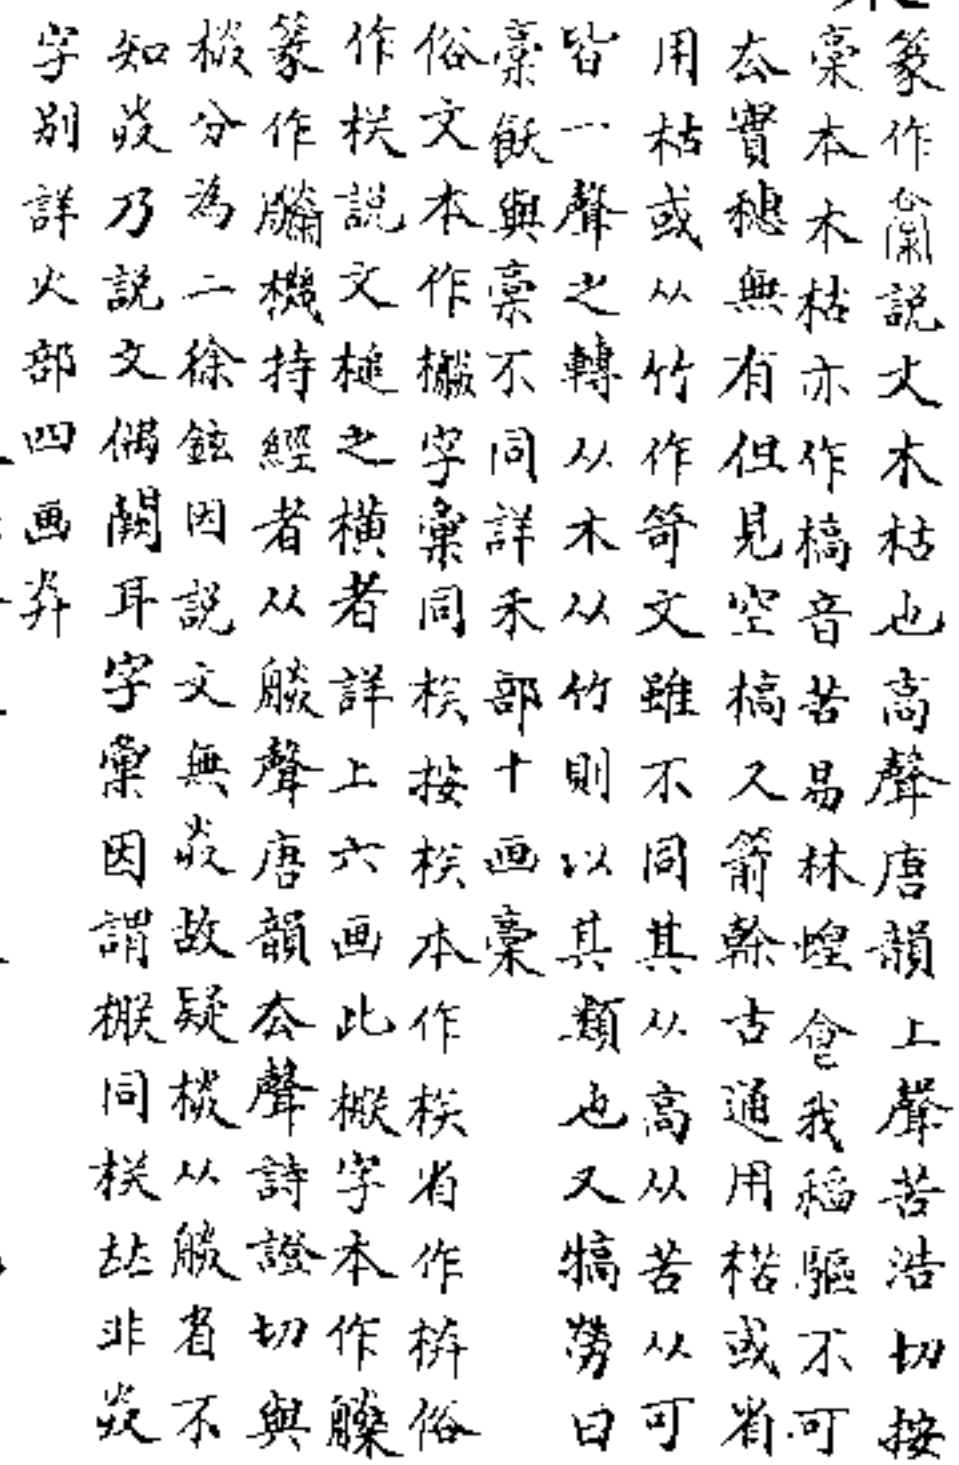 篆作𣞻說文木枯也高聲唐韻上聲苦浩切按
稾本木枯亦作槁音苦易林蝗食我稻驅不可
去實穗無有但見空槁又箭榦古通用楛或省
用枯或从竹作笴文雖不同其从高从苦从可
皆一聲之轉从木从竹則以其類也又犒勞曰
稾飫與稾不同詳禾部十画稾
俗文本作橵字彙同栚按栚本作栚省作栟俗
作栚說文槌之橫者詳上六画此橵字本作
篆作機持經者从朕聲唐韻去聲詩證切與
橵分為二徐鉉因說文無灷故疑栚从朕省不
知灷乃說文偶闕耳字彙因謂橵同栚㠪非灷
字別詳火部四画灷